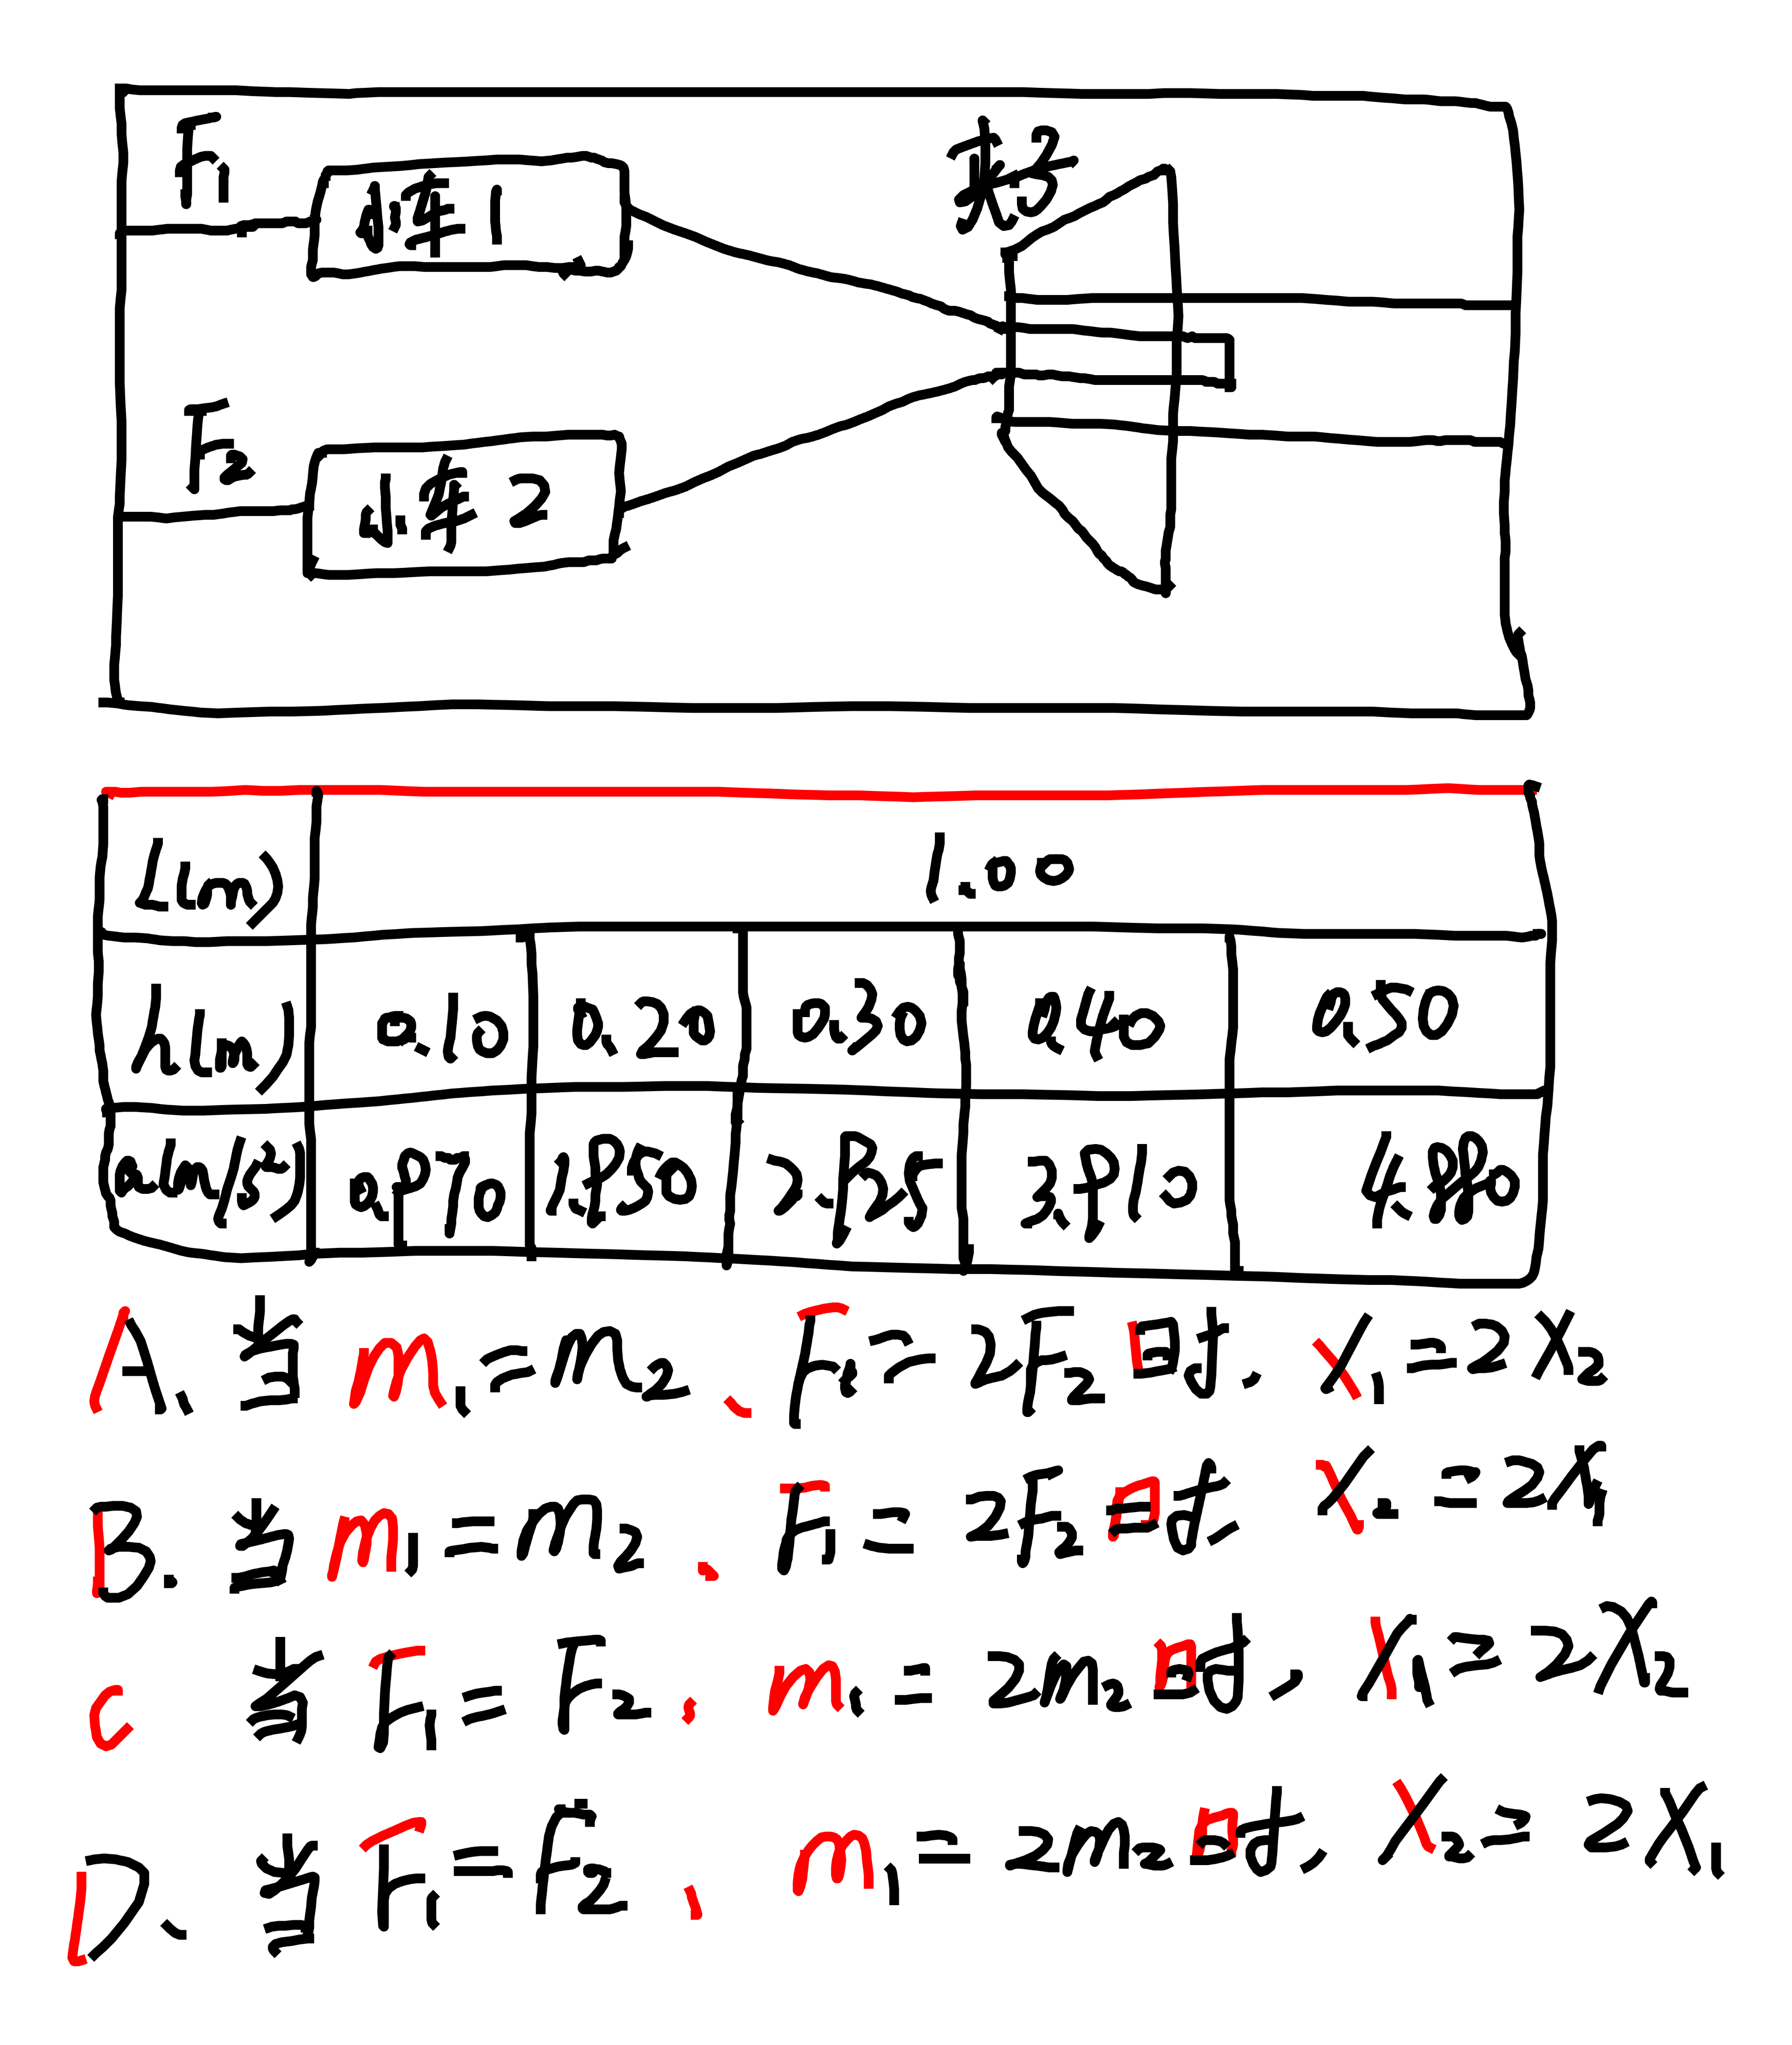 F₁
小车 1
F₂
小车 2
L(m) 1.00
h(m) 0.10 0.20 0.30 0.40 0.50
a(m/s²) 0.970 1.950 2.925 3.910 4.880
A. 当 m₁=m₂、F₁=2F₂时, X₁=2X₂
B. 当 m₁=m₂、F₁=2F₂时, X₂=2X₁
C 当 F₁=F₂、m₁=2m₂时, X₁=2X₂
D. 当 F₁=F₂、m₁=2m₂时, X₂=2X₁